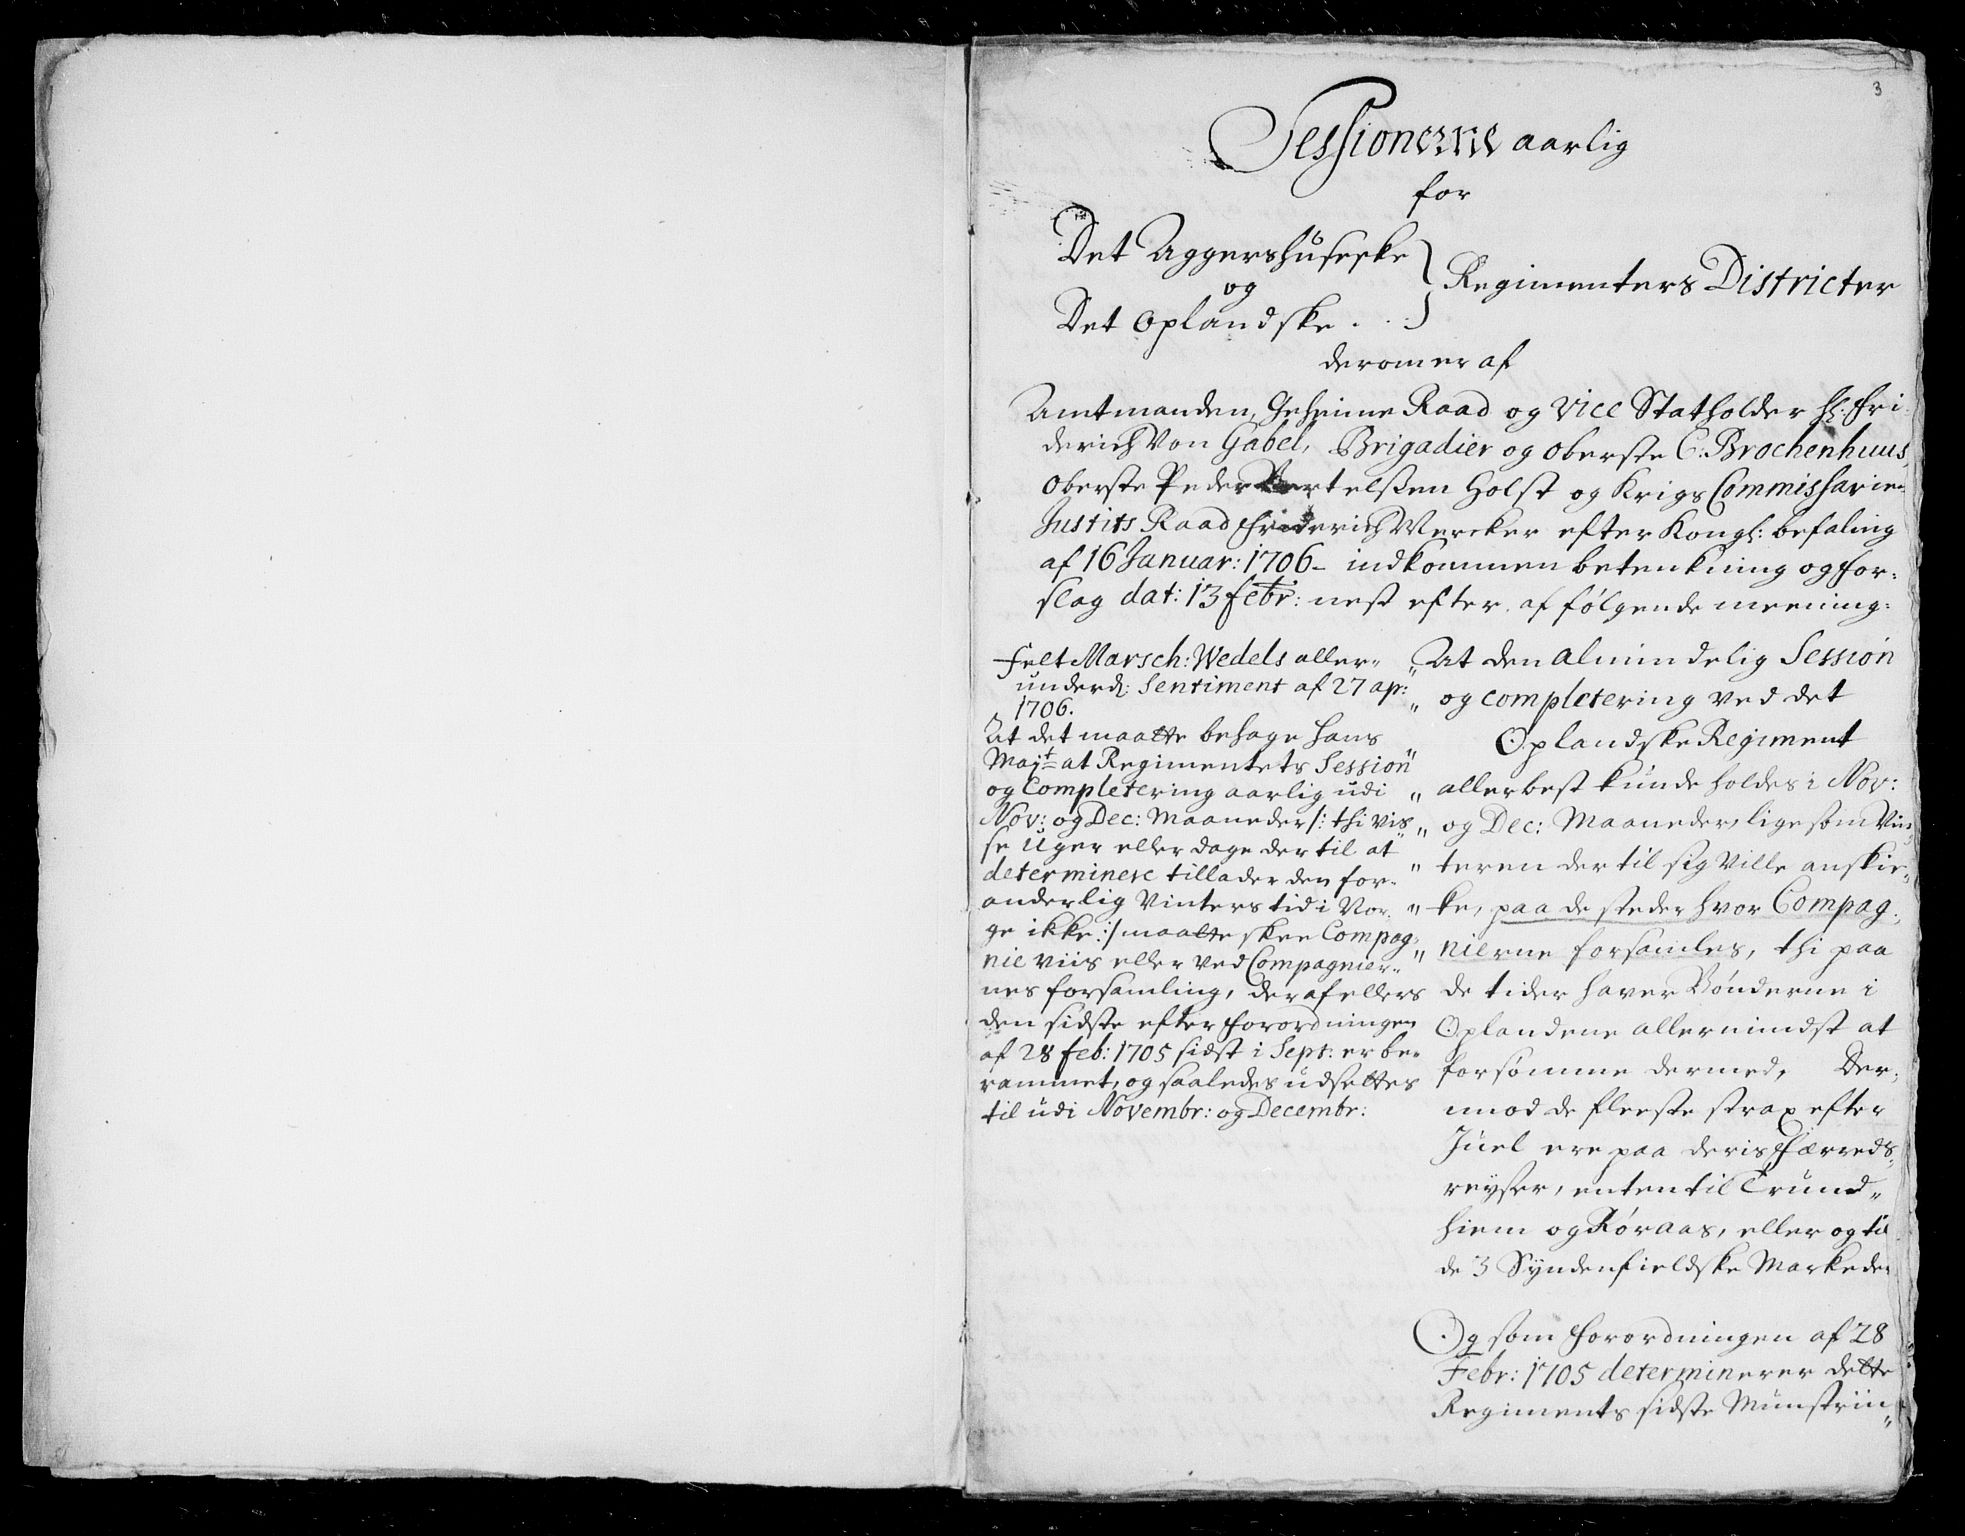 3
Sessionerne aarlig
for
Det Aggershuseske
og
Det Oplandske . . .
Regimenters Districter
deromer af
Amtmanden, Geheime Raad og Vice Statholder H: Fri-
derich Von Gabel, Brigadier og Oberste C: Brochenhuus,
Oberste Peder Bertelssen Holst og Krigs Commissarie
Justits Raad Friderich Wercker efter Kongl: befaling
af 16 Januar: 1706 - indkommen betenkning og for-
slag dat: 13 Febr: nest efter, af følgende meening:
Felt Marsch: Wedels aller-
underd: Sentiment af 27 apr:
1706.
At det maatte behage hans
Majt at Regimentets Session
og Completering aarlig udi
Nov: og Dec: Maaneder /: thi vis-
se Uger eller dage der til at
determinere tillader den for-
anderlig Vinters tid i Nor-
ge ikke :/ maatte skee Compag-
nie viis eller ved Compagnier-
nes forsamling, der af ellers
den sidste efter Forordningen
af 28 Feb: 1705 sidst i Sept: er be-
rammet, og saaledes udsettes
til udi Novembr: og Decembr:
" At den almindelig Session
" og completering ved det
Oplandske Regiment
" allerbest kunde holdes i Nov:
" og Dec: Maaneder, lige som Vin-
" teren der til sig ville anskic-
" ke, paa de steder hvor Compag-
" nierne forsamles, thi paa
de tider haver Bønderne i
Oplandene allermindst at
forsømme dermed, Der-
mod de fleeste strax efter
Juel ere paa deris Færreds-
reyser, enten til Trund-
hiem og Røraas, eller og til
de 3 Syndenfieldske Markeder
Og som Forordningen af 28
Febr: 1705 determinerer dette
Regiments sidste Munstrin-